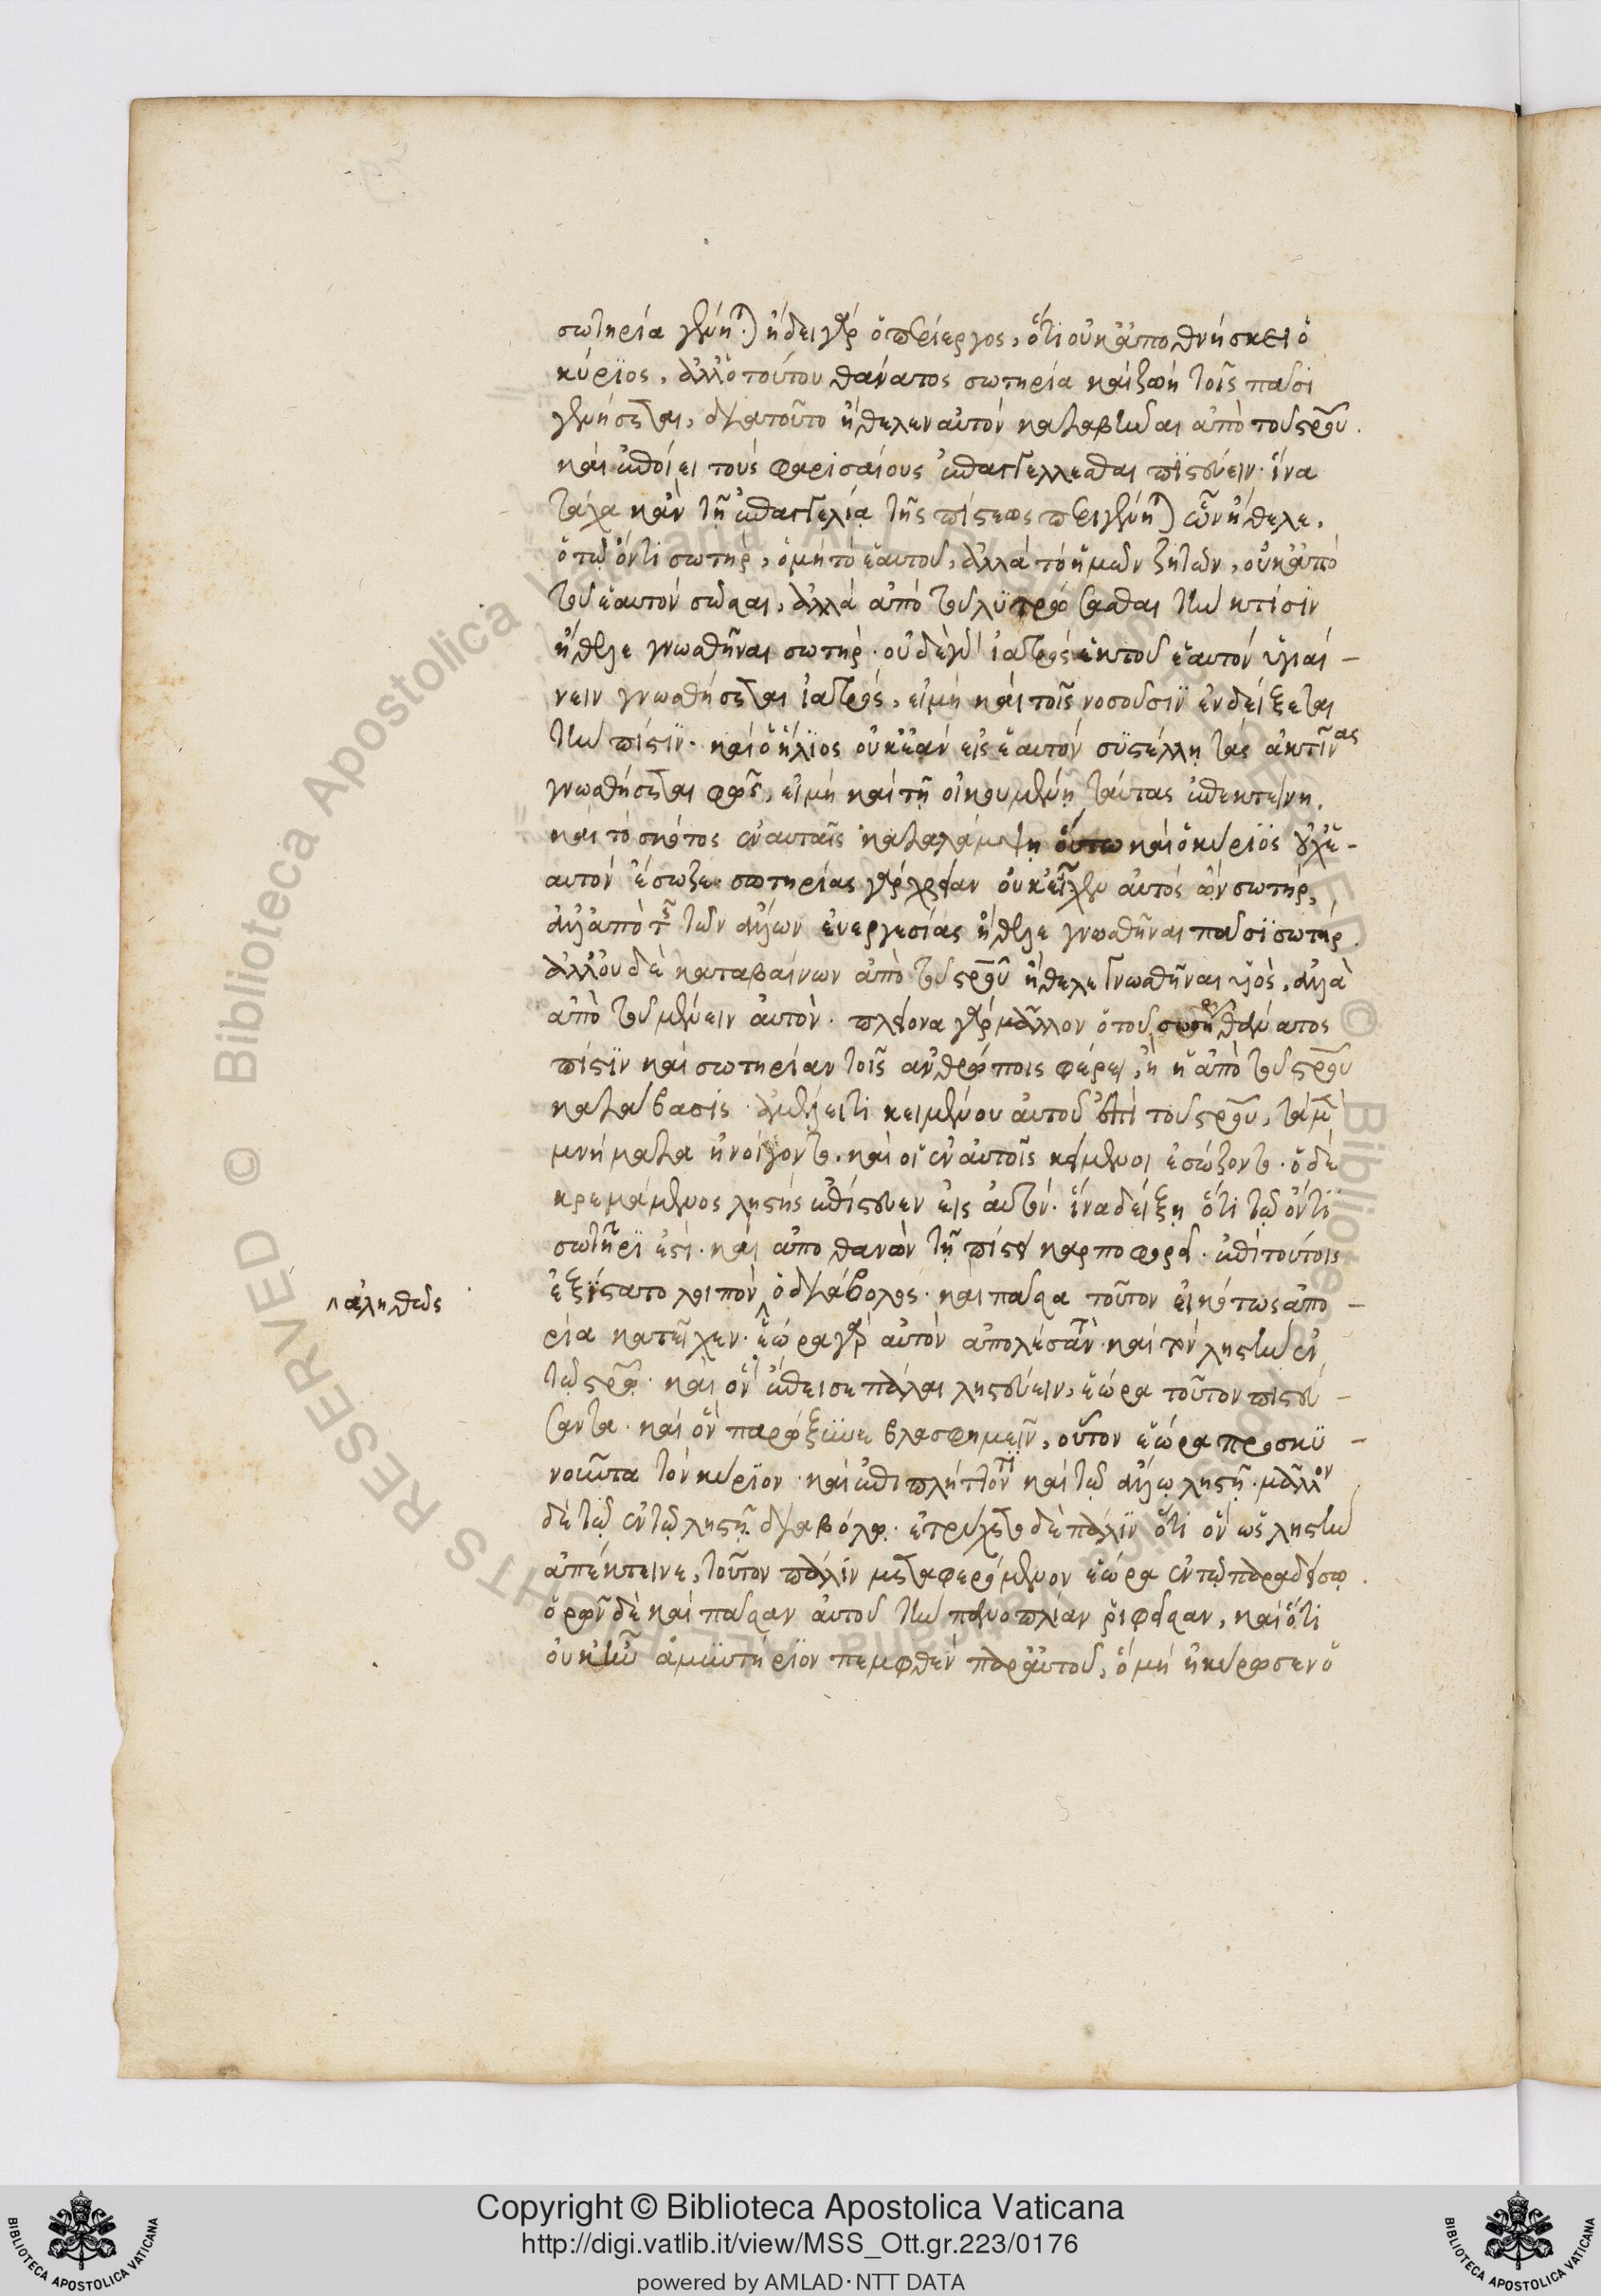 σωτηρία γένηται) ἤδει γὰρ ὁ περίεργος, ὅτι οὐκ ἀποθνήσκει ὁ
κύριος, ἀλλ' ὁ τούτου θάνατος σωτηρία καὶ ζωὴ τοῖς πᾶσι
γενήσεται, διὰ τοῦτο ἤθελεν αὐτὸν καταβῆναι ἀπὸ τοῦ σταυροῦ.
καὶ ἐποίει τοὺς φαρισαίους ἐπαγγέλλεσθαι πιστεύειν. ἵνα
τάχα κἂν τῇ ἐπαγγελίᾳ τῆς πίστεως περιγένηται) ὧν ἤθελε.
ὁ τῷ ὄντι σωτὴρ, ὁ μὴ τὸ ἑαυτοῦ, ἀλλὰ τὸ ἡμῶν ζητῶν, οὐκ ἀπὸ
τοῦ ἑαυτὸν σῶσαι, ἀλλὰ ἀπὸ τοῦ λυτρώσασθαι τὴν κτίσιν
ἤθελε γνωσθῆναι σωτήρ. οὐδὲ γὰρ ἰατρὸς ἐκ τοῦ ἑαυτὸν ὑγιαί-
νειν γνωσθήσεται ἰατρός, εἰ μὴ καὶ τοῖς νοσοῦσιν ἐνδείξεται
τὴν πίστιν. καὶ ὁ ἥλιος οὐκ ἐὰν εἰς ἑαυτὸν συστέλλῃ τὰς ἀκτῖνας
γνωσθήσεται φῶς, εἰ μὴ καὶ τῇ οἰκουμένῃ ταύτας ἐπεκτείνῃ.
καὶ τὸ σκότος ἐν αὐταῖς καταλάμψῃ οὕτω καὶ ὁ κύριος οὐχ ἑ-
αυτὸν ἔσωζε. σωτηρίας γὰρ χρείαν οὐκ εἶχεν αὐτὸς ὢν σωτήρ,
ἀλλ' ἀπὸ τῆς τῶν ἄλλων ἐνεργεσίας ἤθελε γνωσθῆναι πᾶσι σωτήρ.
ἀλλ' οὐδὲ καταβαίνων ἀπὸ τοῦ σταυροῦ ἤθελε γνωσθῆναι υἱὸς, ἀλλὰ
ἀπὸ τοῦ μένειν αὐτόν. πλείονα γὰρ μᾶλλον ὁ τοῦ σωτῆρος θάνατος
πίστιν καὶ σωτηρίαν τοῖς ἀνθρώποις φέρει, ἢ ἡ ἀπὸ τοῦ σταυροῦ
κατάβασις. ἀμέλει τι κειμένου αὐτοῦ ἐπὶ τοῦ σταυροῦ, τὰ μὲν
μνήματα ἠνοίγοντο. καὶ οἱ ἐν αὐτοῖς κείμενοι ἐσώζοντο. ὁ δὲ
κρεμάμενος λῃστὴς ἐπίστευεν εἰς αὐτόν. ἵνα δείξῃ ὅτι τῷ ὄντι
σωτήρ ἐστι. καὶ ἀποθανὼν τῇ πίστει καρποφορεῖ. ἐπὶ τούτοις
ἐξίστατο λοιπὸν ὁ διάβολος. καὶ πᾶσα τοῦτον εἰκότως ἀπο-
^ ἀληθῶς
ρία κατεῖχεν. ἑώρα γὰρ αὐτὸν ἀπολέσαντα. καὶ τὸν λῃστὴν ἐν
τῷ σταυρῷ. καὶ ὃν ἔπεισε πάλαι λῃστεύειν, ἑώρα τοῦτον πιστεύ-
σαντα. καὶ ὃν παρώξυνε βλασφημεῖν, οὗτον ἑώρα προσκυ-
νοῦντα τὸν κύριον. καὶ ἐπιπλήττοντι καὶ τῷ ἄλλῳ λῃστῇ. μᾶλλον
δὲ τῷ ἐν τῷ λῃστῇ διαβόλῳ. ἐτρύχετο δὲ πάλιν ὅτι ὃν ὡς λῃστὴν
ἀπέκτεινε, τοῦτον πάλιν μεταφερόμενον ἑώρα ἐν τῷ παραδείσῳ.
ὁρῶν δὲ καὶ πᾶσαν αὐτοῦ τὴν πανοπλίαν ῥιφεῖσαν, καὶ ὅτι
οὐκ ἦν ἀμυντήριον πεμφθὲν παρ' αὐτοῦ, ὃ μὴ ἠκύρωσεν ὁ
Copyright © Biblioteca Apostolica Vaticana
http://digi.vatlib.it/view/MSS_Ott.gr.223/0176
powered by AMLAD·NTT DATA